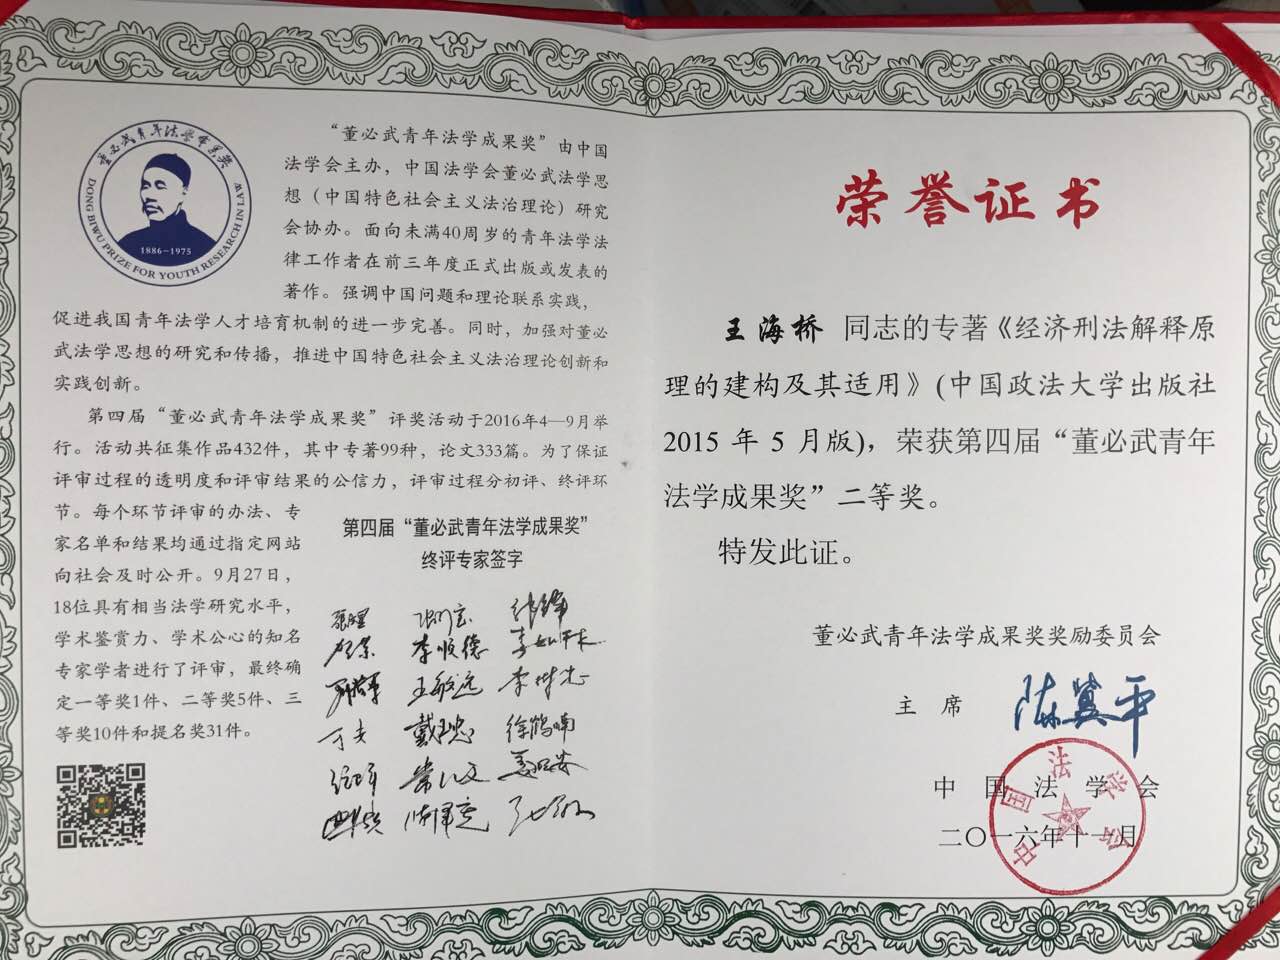 董必武青年法学成果奖
DONG BIWU PRIZE FOR YOUTH RESEARCH IN LAW
1886-1975
“董必武青年法学成果奖”由中国
法学会主办，中国法学会董必武法学思
想（中国特色社会主义法治理论）研究
会协办。面向未满40周岁的青年法学法
律工作者在前三年度正式出版或发表的
著作。强调中国问题和理论联系实践，
促进我国青年法学人才培育机制的进一步完善。同时，加强对董必
武法学思想的研究和传播，推进中国特色社会主义法治理论创新和
实践创新。
第四届“董必武青年法学成果奖”评奖活动于2016年4—9月举
行。活动共征集作品432件，其中专著99种，论文333篇。为了保证
评审过程的透明度和评审结果的公信力，评审过程分初评、终评环
节。每个环节评审的办法、专
家名单和结果均通过指定网站
向社会及时公开。9月27日，
18位具有相当法学研究水平，
学术鉴赏力、学术公心的知名
专家学者进行了评审，最终确
定一等奖1件、二等奖5件、三
等奖10件和提名奖31件。
第四届“董必武青年法学成果奖”
终评专家签字
李顺德
王敏远
徐鹤喃
荣誉证书
王海桥 同志的专著《经济刑法解释原
理的建构及其适用》(中国政法大学出版社
2015 年 5 月版)，荣获第四届“董必武青年
法学成果奖”二等奖。
特发此证。
董必武青年法学成果奖奖励委员会
主 席 陈冀平
中 国 法 学 会
二〇一六年十一月
中国法学会